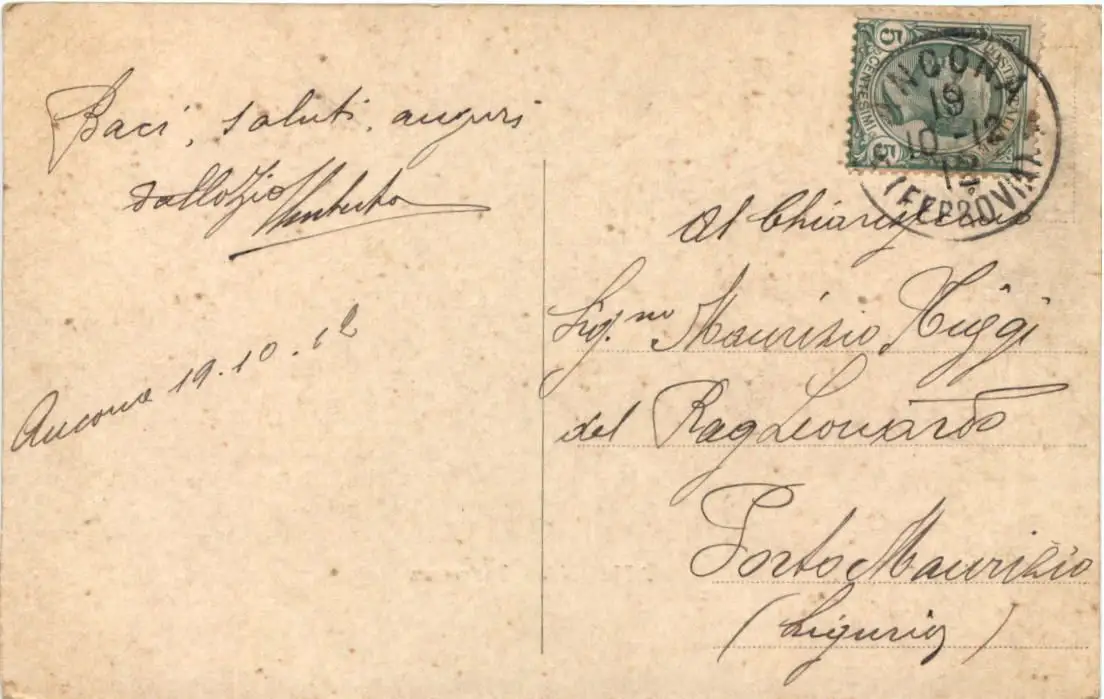 Baci, saluti, auguri
dallo Zio Umberto
Ancona 19.10.12
POSTE ITALIANE
5 CENTESIMI 5
ANCONA
19
10-12
(FERROVIA)
Al Chiarissimo
Sig.no Maurizio
del Rag Leonardo
Porto Maurizio
(Liguria)